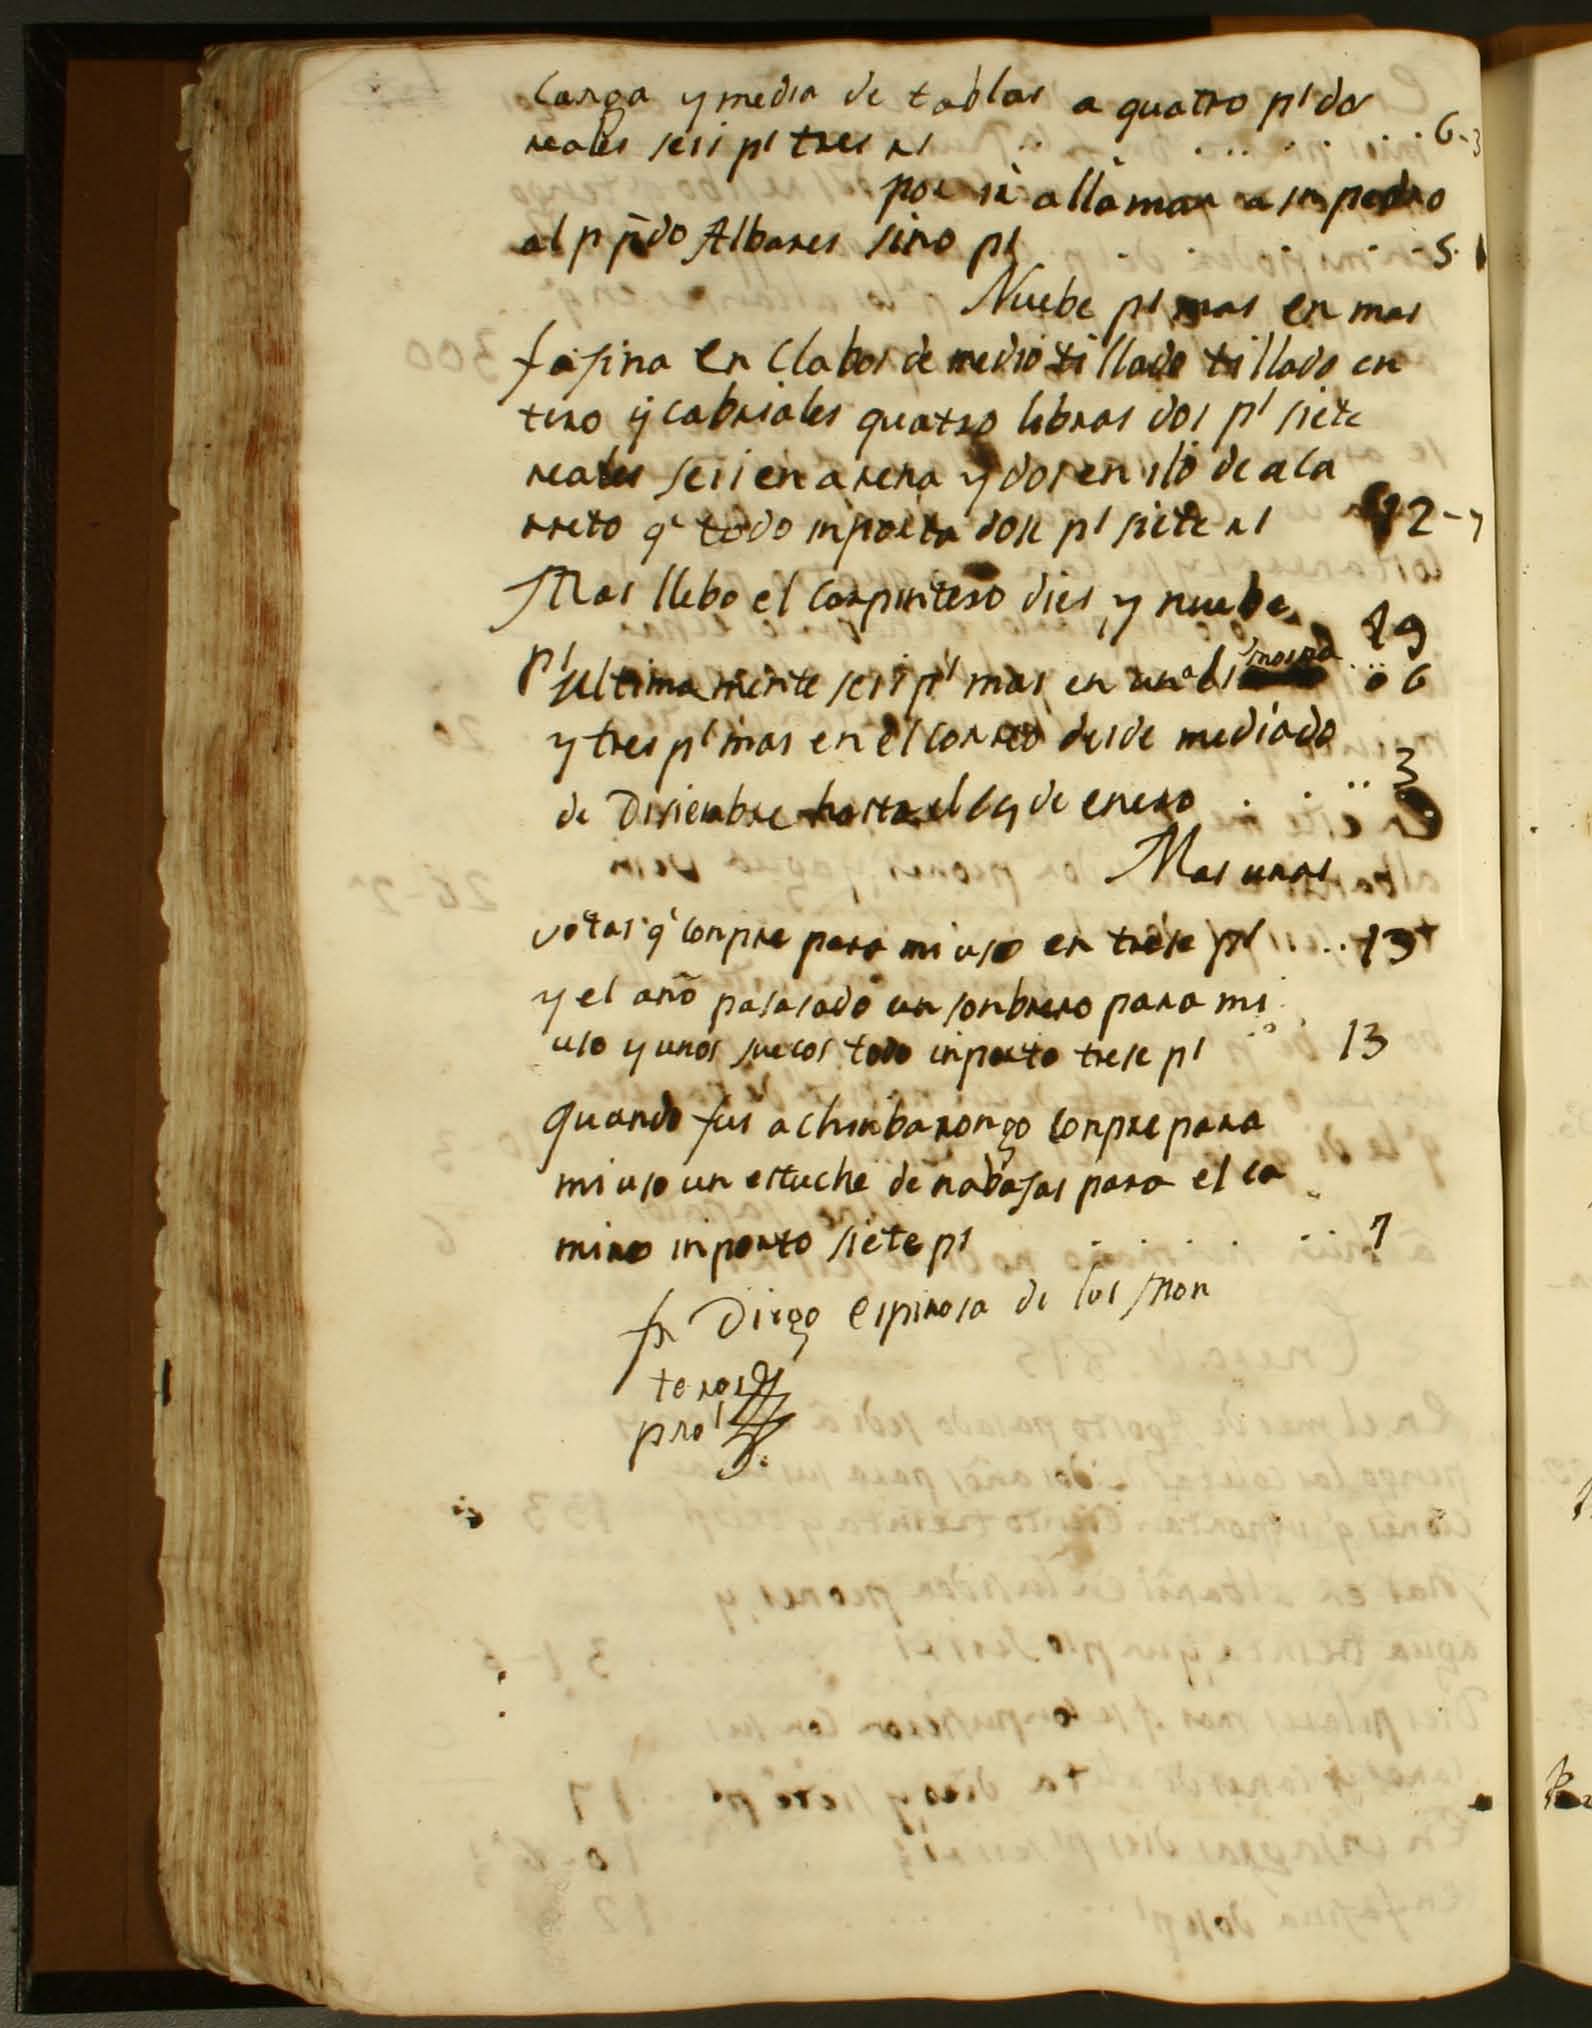 Carga y media de tablas a quatro ps dos
reales seis ps tres rs . . . . . . . 6-3
por ir a llamar a sn pedro
al p pdo Albares sinco ps 5.
Nuebe ps mas en mas
fajina en Clabos de medio tillado tillado en
tero y cabriales quatro libras dos ps siete
reales seis en arena y dos en ilo de aca
rreto q todo inporta dose ps siete rs 12-7
Mas llebo el Carpintero dies y nuebe 19
ps ultimamente seis ps mas en una limosna 6
y tres ps mas en el correo desde mediado
de Disiembre hasta el 19 de enero . . . 3
Mas unas
votas q conpre para mi uso en trese ps . . . 13
y el año pasasado un sonbrero para mi
uso y unos suecos todo inporto trese ps 13
Quando fui a chinbarongo conpre para
mi uso un estuche de nabajas para el ca
mino inporto siete ps . . . . . . 7
fr Diego Espinosa de los Mon
teros
pror